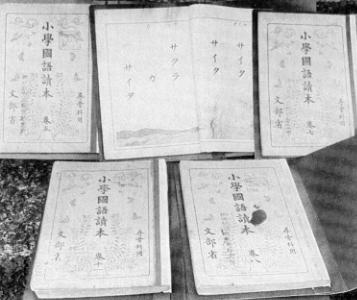 尋常科用
小學國語讀本 卷五
文部省
サイタ
サイタ
サクラ
ガ
サイタ
尋常科用
小學國語讀本 卷七
文部省
尋常科用
小學國語讀本 卷十
文部省
尋常科用
小學國語讀本 卷八
文部省